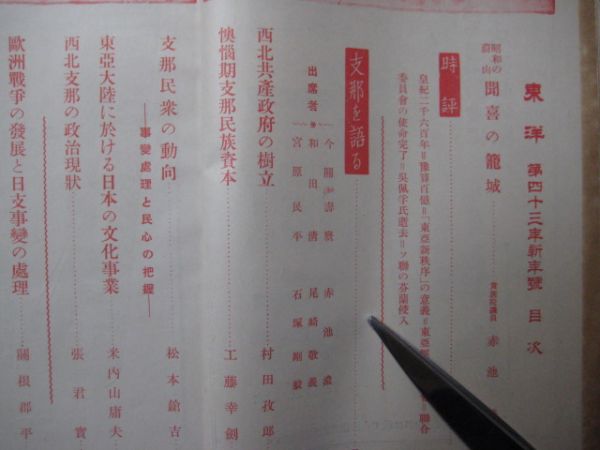 東洋 第四十三年新年號 目次
昭和の
嵩山 聞喜の籠城 貴族院議員 赤池
時評
皇紀二千六百年＝豫算百億＝「東亞新秩序」の意義＝東亞 聯合
委員會の使命完了＝吳佩孚氏逝去＝ソ聯の芬蘭侵入
支那を語る
出席者
今關壽麿 赤池濃
和田淸 尾崎敬義
宮原民平 石塚剛毅
西北共產政府の樹立 村田孜郎
懊惱期支那民族資本 工藤幸劍
支那民衆の動向 松本鎗吉
——事變處理と民心の把握——
東亞大陸に於ける日本の文化事業 米內山庸夫
西北支那の政治現狀 張君實
歐洲戰爭の發展と日支事變の處理 關根郡平